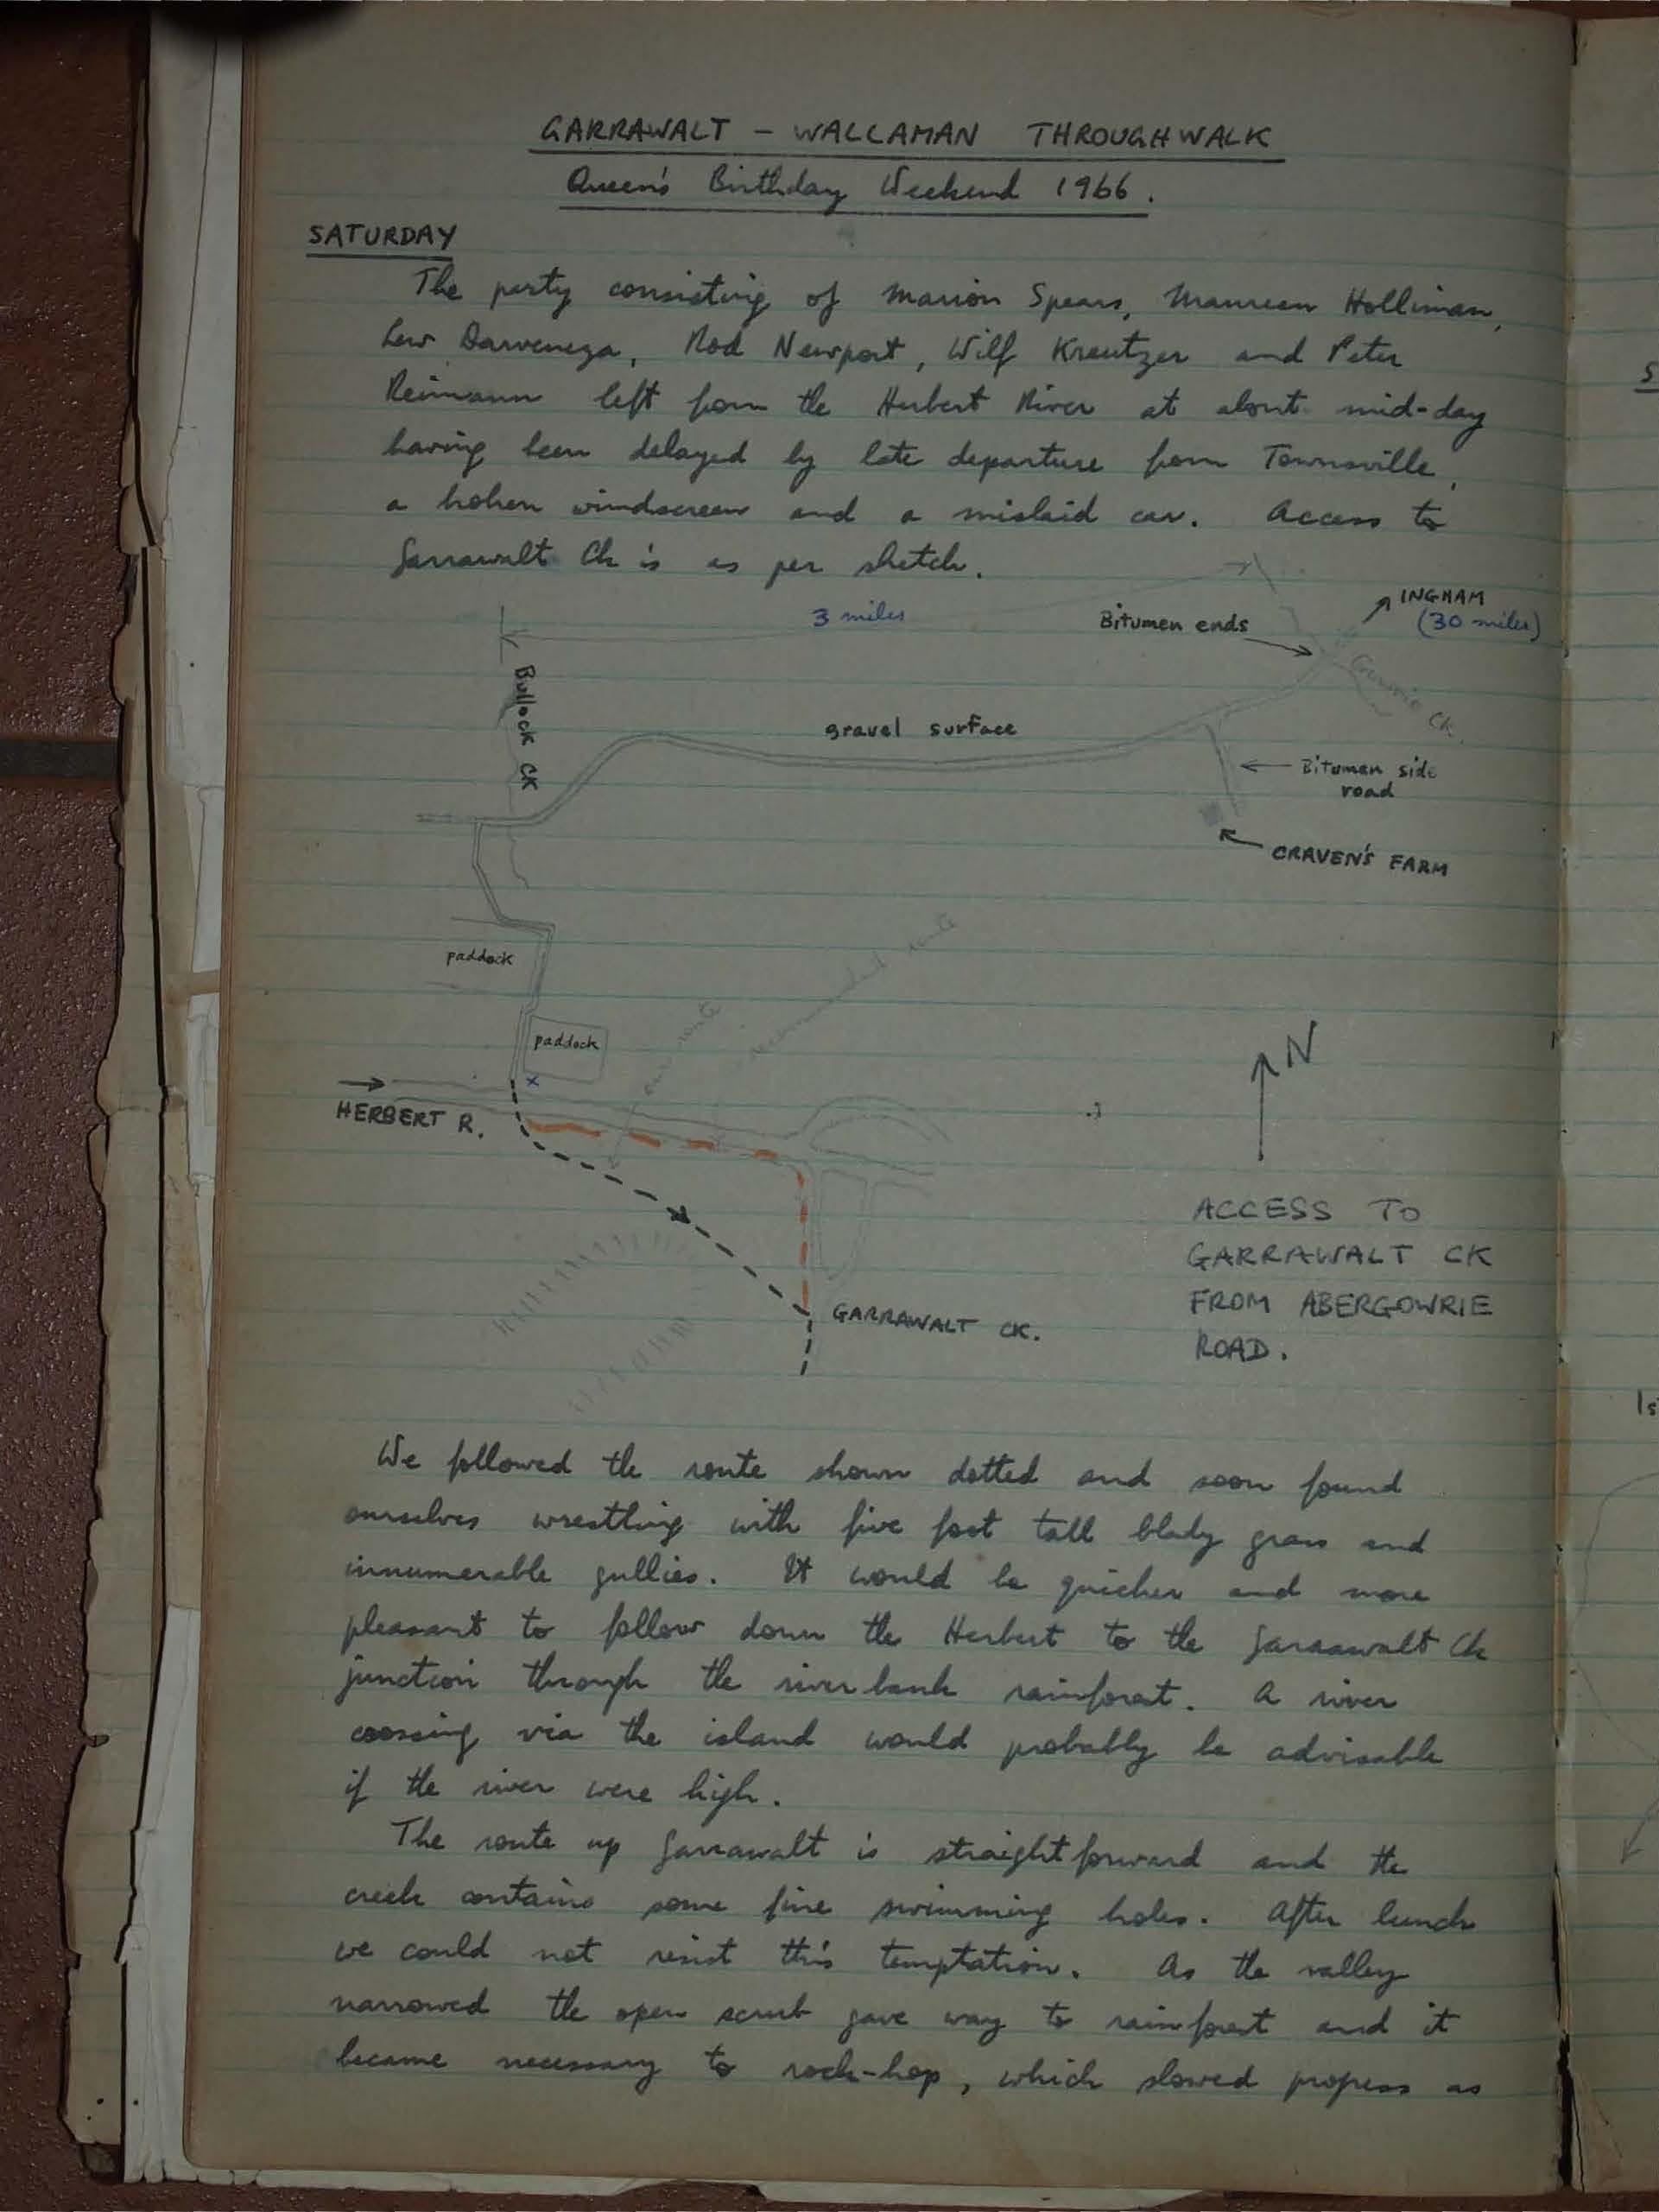 GARRAWALT - WALLAMAN THROUGHWALK
Queen's Birthday Weekend 1966.
SATURDAY
The party consisting of Marion Spears, Maureen Holliman,
Lew Darveniza, Rod Newport, Wilf Kreutzer and Peter
Reimann left from the Herbert River at about mid-day
having been delayed by late departure from Townsville,
a broken windscreen and a mislaid car. Access to
Garrawalt Ck is as per sketch.
INGHAM
(30 miles)
3 miles
Bitumen ends
Bullock CK
Ck.
gravel surface
Bitumen side
road
CRAVEN'S FARM
paddock
our route
recommended route
paddock
N
HERBERT R.
ACCESS TO
GARRAWALT CK
FROM ABERGOWRIE
ROAD.
GARRAWALT CK.
We followed the route shown dotted and soon found
ourselves wrestling with five foot tall blady grass and
innumerable gullies. It would be quicker and more
pleasant to follow down the Herbert to the Garrawalt Ck
junction through the river bank rainforest. A river
crossing via the island would probably be advisable
if the river were high.
The route up Garrawalt is straightforward and the
creek contains some fine swimming holes. After lunch
we could not resist this temptation. As the valley
narrowed the open scrub gave way to rainforest and it
became necessary to rock-hop, which slowed progress as